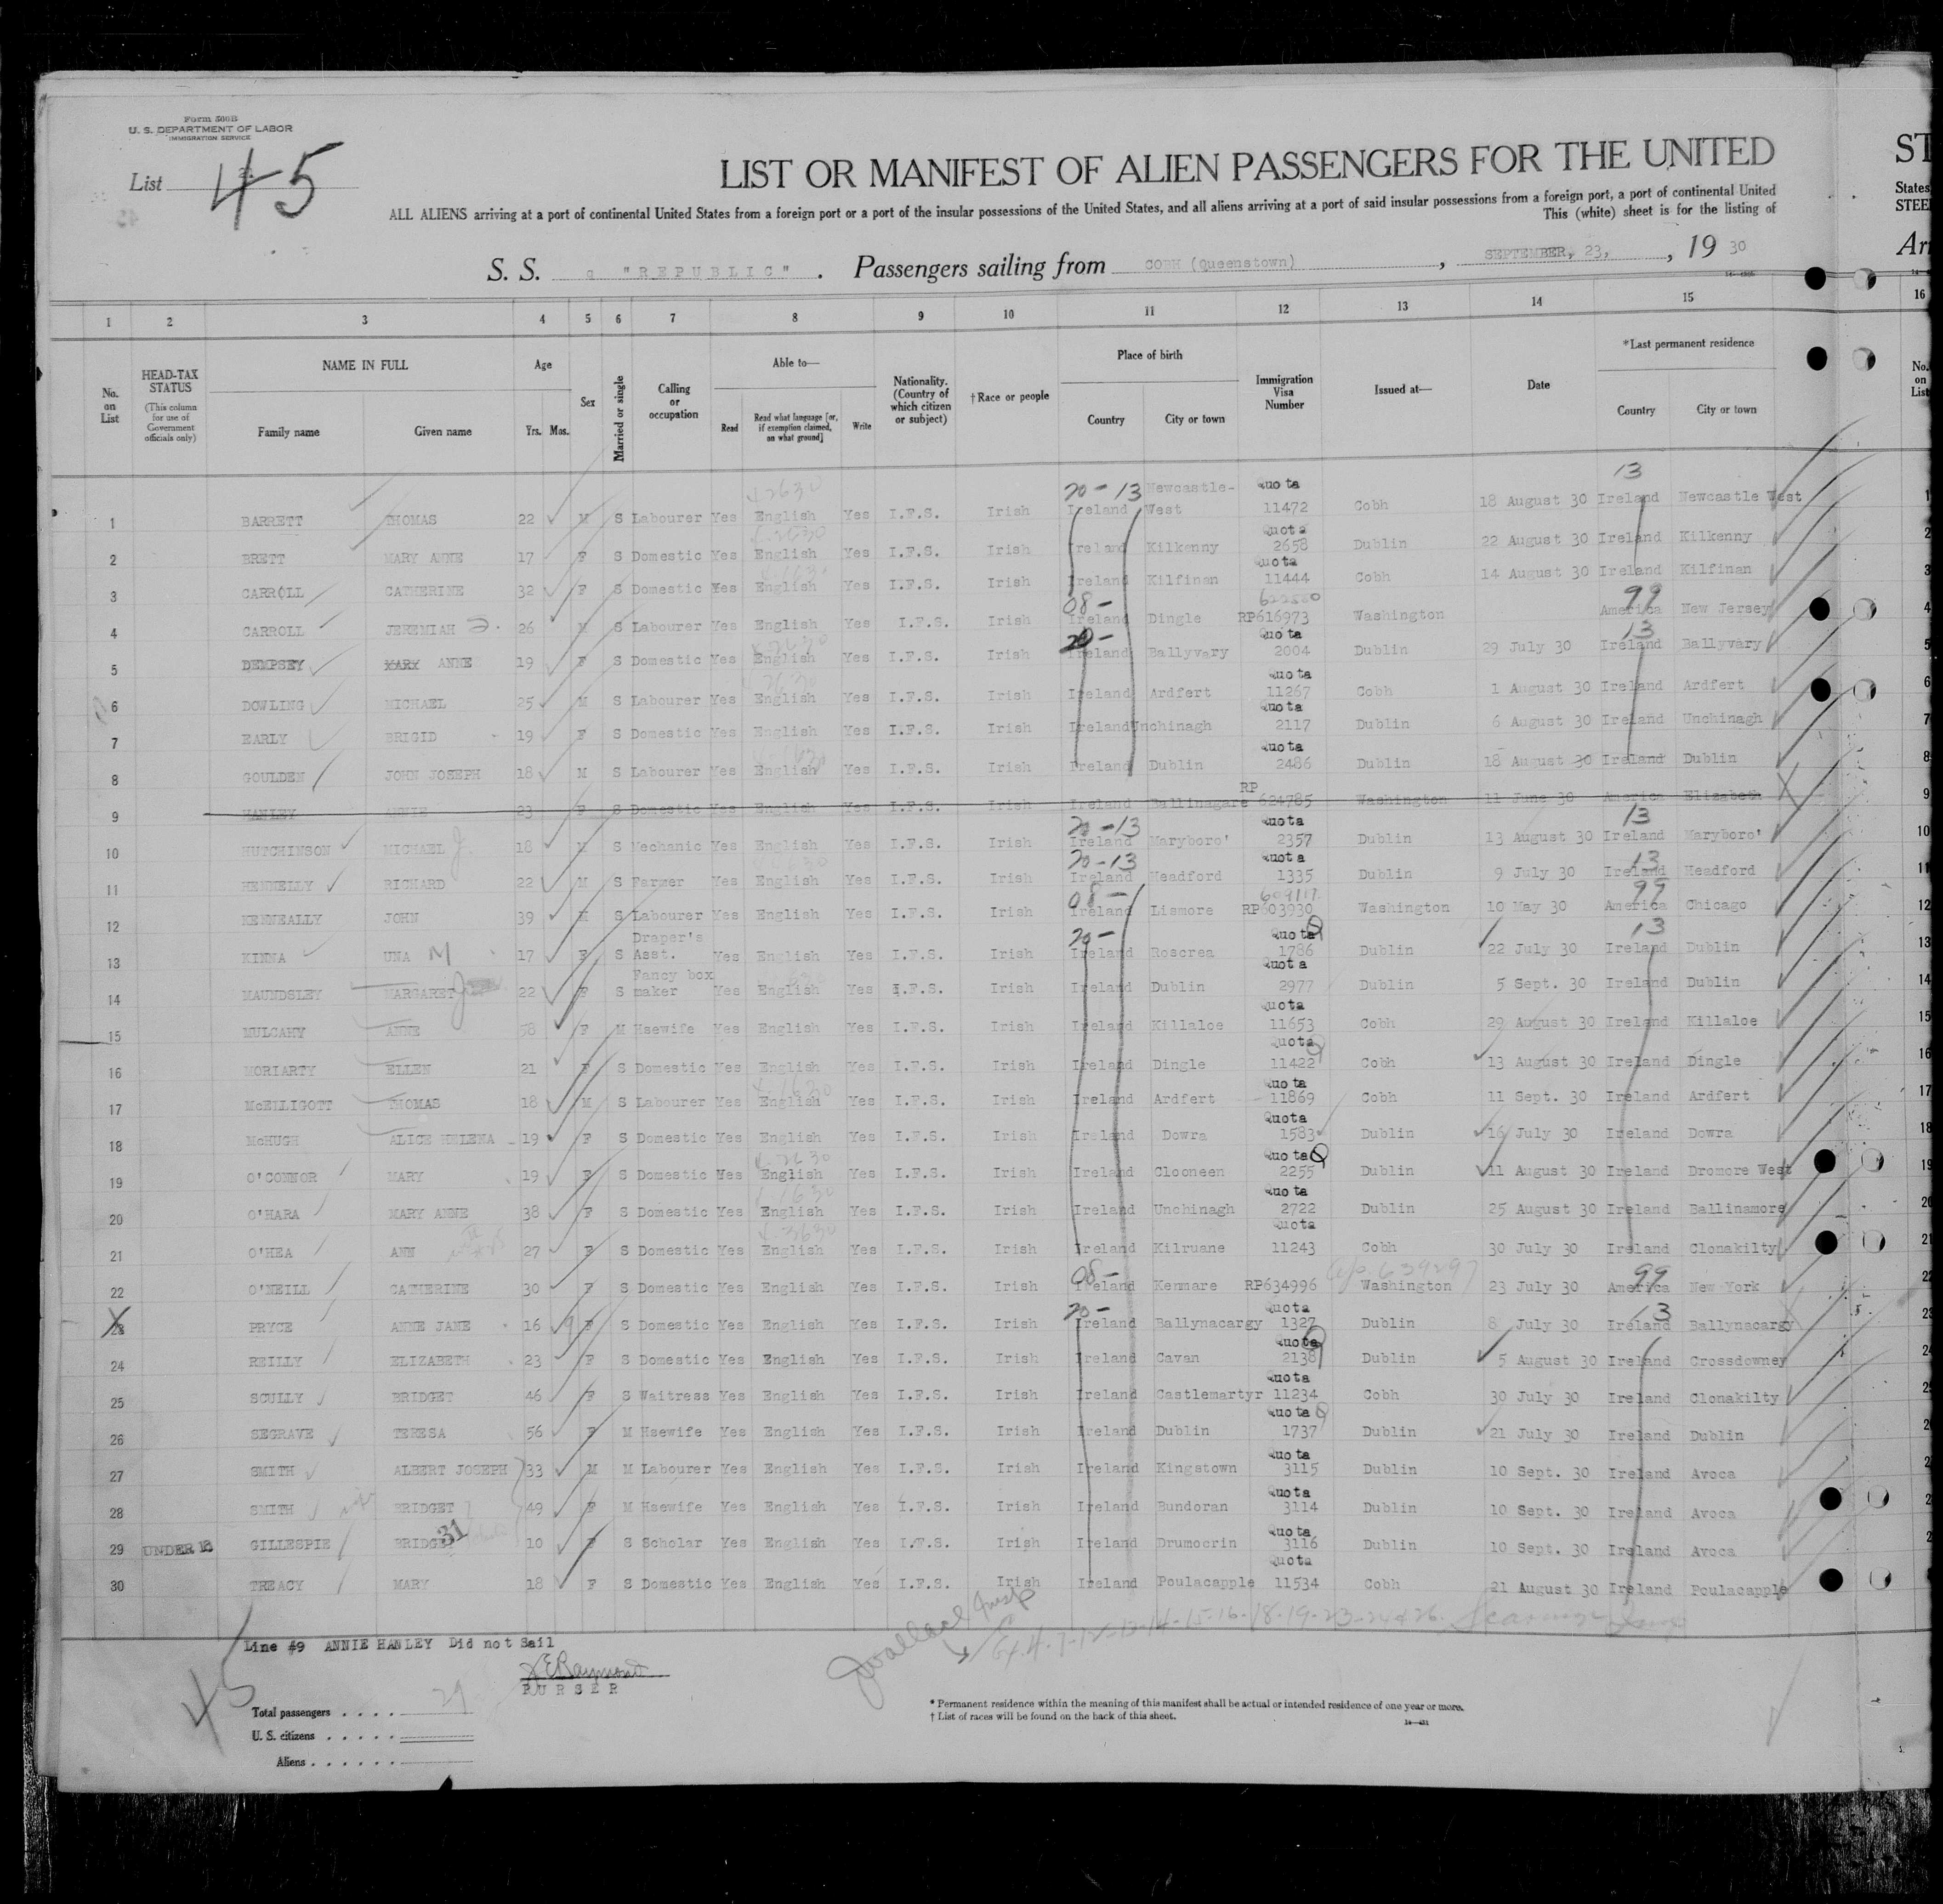 Form 500B
U. S. DEPARTMENT OF LABOR
IMMIGRATION SERVICE
List 45
LIST OR MANIFEST OF ALIEN PASSENGERS FOR THE UNITED
ST
ALL ALIENS arriving at a port of continental United States from a foreign port or a port of the insular possessions of the United States, and all aliens arriving at a port of said insular possessions from a foreign port, a port of continental United
States
This (white) sheet is for the listing of
STEE
S. S. "REPUBLIC". Passengers sailing from COBH (Queenstown), SEPTEMBER, 23, , 19 30
Arr
1 2 3 4 5 6 7 8 9 10 11 12 13 14 15 16
No. on List
HEAD-TAX STATUS (This column for use of Government officials only)
NAME IN FULL Family name Given name
Age Yrs. Mos.
Sex
Married or single
Calling or occupation
Able to— Read Read what language [or, if exemption claimed, on what ground] Write
Nationality. (Country of which citizen or subject)
†Race or people
Place of birth Country City or town
Immigration Visa Number
Issued at—
Date
*Last permanent residence Country City or town
No. on List
1 BARRETT THOMAS 22 M S Labourer Yes English Yes I.F.S. Irish 20-13 Ireland Newcastle-West Quota 11472 Cobh 18 August 30 13 Ireland Newcastle West 1
2 BRETT MARY ANNE 17 F S Domestic Yes English Yes I.F.S. Irish Ireland Kilkenny Quota 2658 Dublin 22 August 30 Ireland Kilkenny 2
3 CARROLL CATHERINE 32 F S Domestic Yes English Yes I.F.S. Irish Ireland Kilfinan Quota 11444 Cobh 14 August 30 Ireland Kilfinan 3
4 CARROLL JEREMIAH J. 26 M S Labourer Yes English Yes I.F.S. Irish 08- Ireland Dingle RP616973 Washington 99 America New Jersey 4
5 DEMPSEY MARY ANNE 19 F S Domestic Yes English Yes I.F.S. Irish 20- Ireland Ballyvary Quota 2004 Dublin 29 July 30 13 Ireland Ballyvary 5
6 DOWLING MICHAEL 25 M S Labourer Yes English Yes I.F.S. Irish Ireland Ardfert Quota 11267 Cobh 1 August 30 Ireland Ardfert 6
7 EARLY BRIGID 19 F S Domestic Yes English Yes I.F.S. Irish Ireland Unchinagh Quota 2117 Dublin 6 August 30 Ireland Unchinagh 7
8 GOULDEN JOHN JOSEPH 18 M S Labourer Yes English Yes I.F.S. Irish Ireland Dublin Quota 2486 Dublin 18 August 30 Ireland Dublin 8
9 HANLEY ANNIE 23 F S Domestic Yes English Yes I.F.S. Irish Ireland Ballinagare RP 624785 Washington 11 June 30 America Elizabeth 9
10 HUTCHINSON MICHAEL J. 18 M S Mechanic Yes English Yes I.F.S. Irish 20-13 Ireland Maryboro' Quota 2357 Dublin 13 August 30 13 Ireland Maryboro' 10
11 HENNELLY RICHARD 22 M S Farmer Yes English Yes I.F.S. Irish 20-13 Ireland Headford Quota 1335 Dublin 9 July 30 13 Ireland Headford 11
12 KENNEALLY JOHN 39 M S Labourer Yes English Yes I.F.S. Irish 08- Ireland Lismore RP603930 Washington 10 May 30 99 America Chicago 12
13 KINNA UNA M 17 F S Draper's Asst. Yes English Yes I.F.S. Irish 20- Ireland Roscrea Quota 1786 Dublin 22 July 30 13 Ireland Dublin 13
14 MAUNDSLEY MARGARET 22 F S Fancy box maker Yes English Yes I.F.S. Irish Ireland Dublin Quota 2977 Dublin 5 Sept. 30 Ireland Dublin 14
15 MULCAHY ANNE 58 F M Hsewife Yes English Yes I.F.S. Irish Ireland Killaloe Quota 11653 Cobh 29 August 30 Ireland Killaloe 15
16 MORIARTY ELLEN 21 F S Domestic Yes English Yes I.F.S. Irish Ireland Dingle Quota 11422 Cobh 13 August 30 Ireland Dingle 16
17 McELLIGOTT THOMAS 18 M S Labourer Yes English Yes I.F.S. Irish Ireland Ardfert Quota 11869 Cobh 11 Sept. 30 Ireland Ardfert 17
18 McHUGH ALICE HELENA 19 F S Domestic Yes English Yes I.F.S. Irish Ireland Dowra Quota 1583 Dublin 16 July 30 Ireland Dowra 18
19 O'CONNOR MARY 19 F S Domestic Yes English Yes I.F.S. Irish Ireland Clooneen Quota 2255 Dublin 11 August 30 Ireland Dromore West 19
20 O'HARA MARY ANNE 38 F S Domestic Yes English Yes I.F.S. Irish Ireland Unchinagh Quota 2722 Dublin 25 August 30 Ireland Ballinamore 20
21 O'HEA ANN 27 F S Domestic Yes English Yes I.F.S. Irish Ireland Kilruane Quota 11243 Cobh 30 July 30 Ireland Clonakilty 21
22 O'NEILL CATHERINE 30 F S Domestic Yes English Yes I.F.S. Irish 08- Ireland Kenmare RP634996 Washington 23 July 30 99 America New York 22
23 PRYCE ANNE JANE 16 F S Domestic Yes English Yes I.F.S. Irish 20- Ireland Ballynacargy Quota 1327 Dublin 8 July 30 13 Ireland Ballynacargy 23
24 REILLY ELIZABETH 23 F S Domestic Yes English Yes I.F.S. Irish Ireland Cavan Quota 2138 Dublin 5 August 30 Ireland Crossdowney 24
25 SCULLY BRIDGET 46 F S Waitress Yes English Yes I.F.S. Irish Ireland Castlemartyr Quota 11234 Cobh 30 July 30 Ireland Clonakilty
26 SEGRAVE TERESA 56 F M Hsewife Yes English Yes I.F.S. Irish Ireland Dublin Quota 1737 Dublin 21 July 30 Ireland Dublin
27 SMITH ALBERT JOSEPH 33 M M Labourer Yes English Yes I.F.S. Irish Ireland Kingstown Quota 3115 Dublin 10 Sept. 30 Ireland Avoca
28 SMITH wife BRIDGET 49 F M Hsewife Yes English Yes I.F.S. Irish Ireland Bundoran Quota 3114 Dublin 10 Sept. 30 Ireland Avoca
29 UNDER 18 GILLESPIE BRIDGET 31 10 F S Scholar Yes English Yes I.F.S. Irish Ireland Drumocrin Quota 3116 Dublin 10 Sept. 30 Ireland Avoca
30 TREACY MARY 18 F S Domestic Yes English Yes I.F.S. Irish Ireland Poulacapple Quota 11534 Cobh 21 August 30 Ireland Poulacapple
Line #9 ANNIE HANLEY Did not Sail
PURSER
45
Total passengers . . . . 29
U. S. citizens . . . . .
Aliens . . . . . .
* Permanent residence within the meaning of this manifest shall be actual or intended residence of one year or more.
† List of races will be found on the back of this sheet.